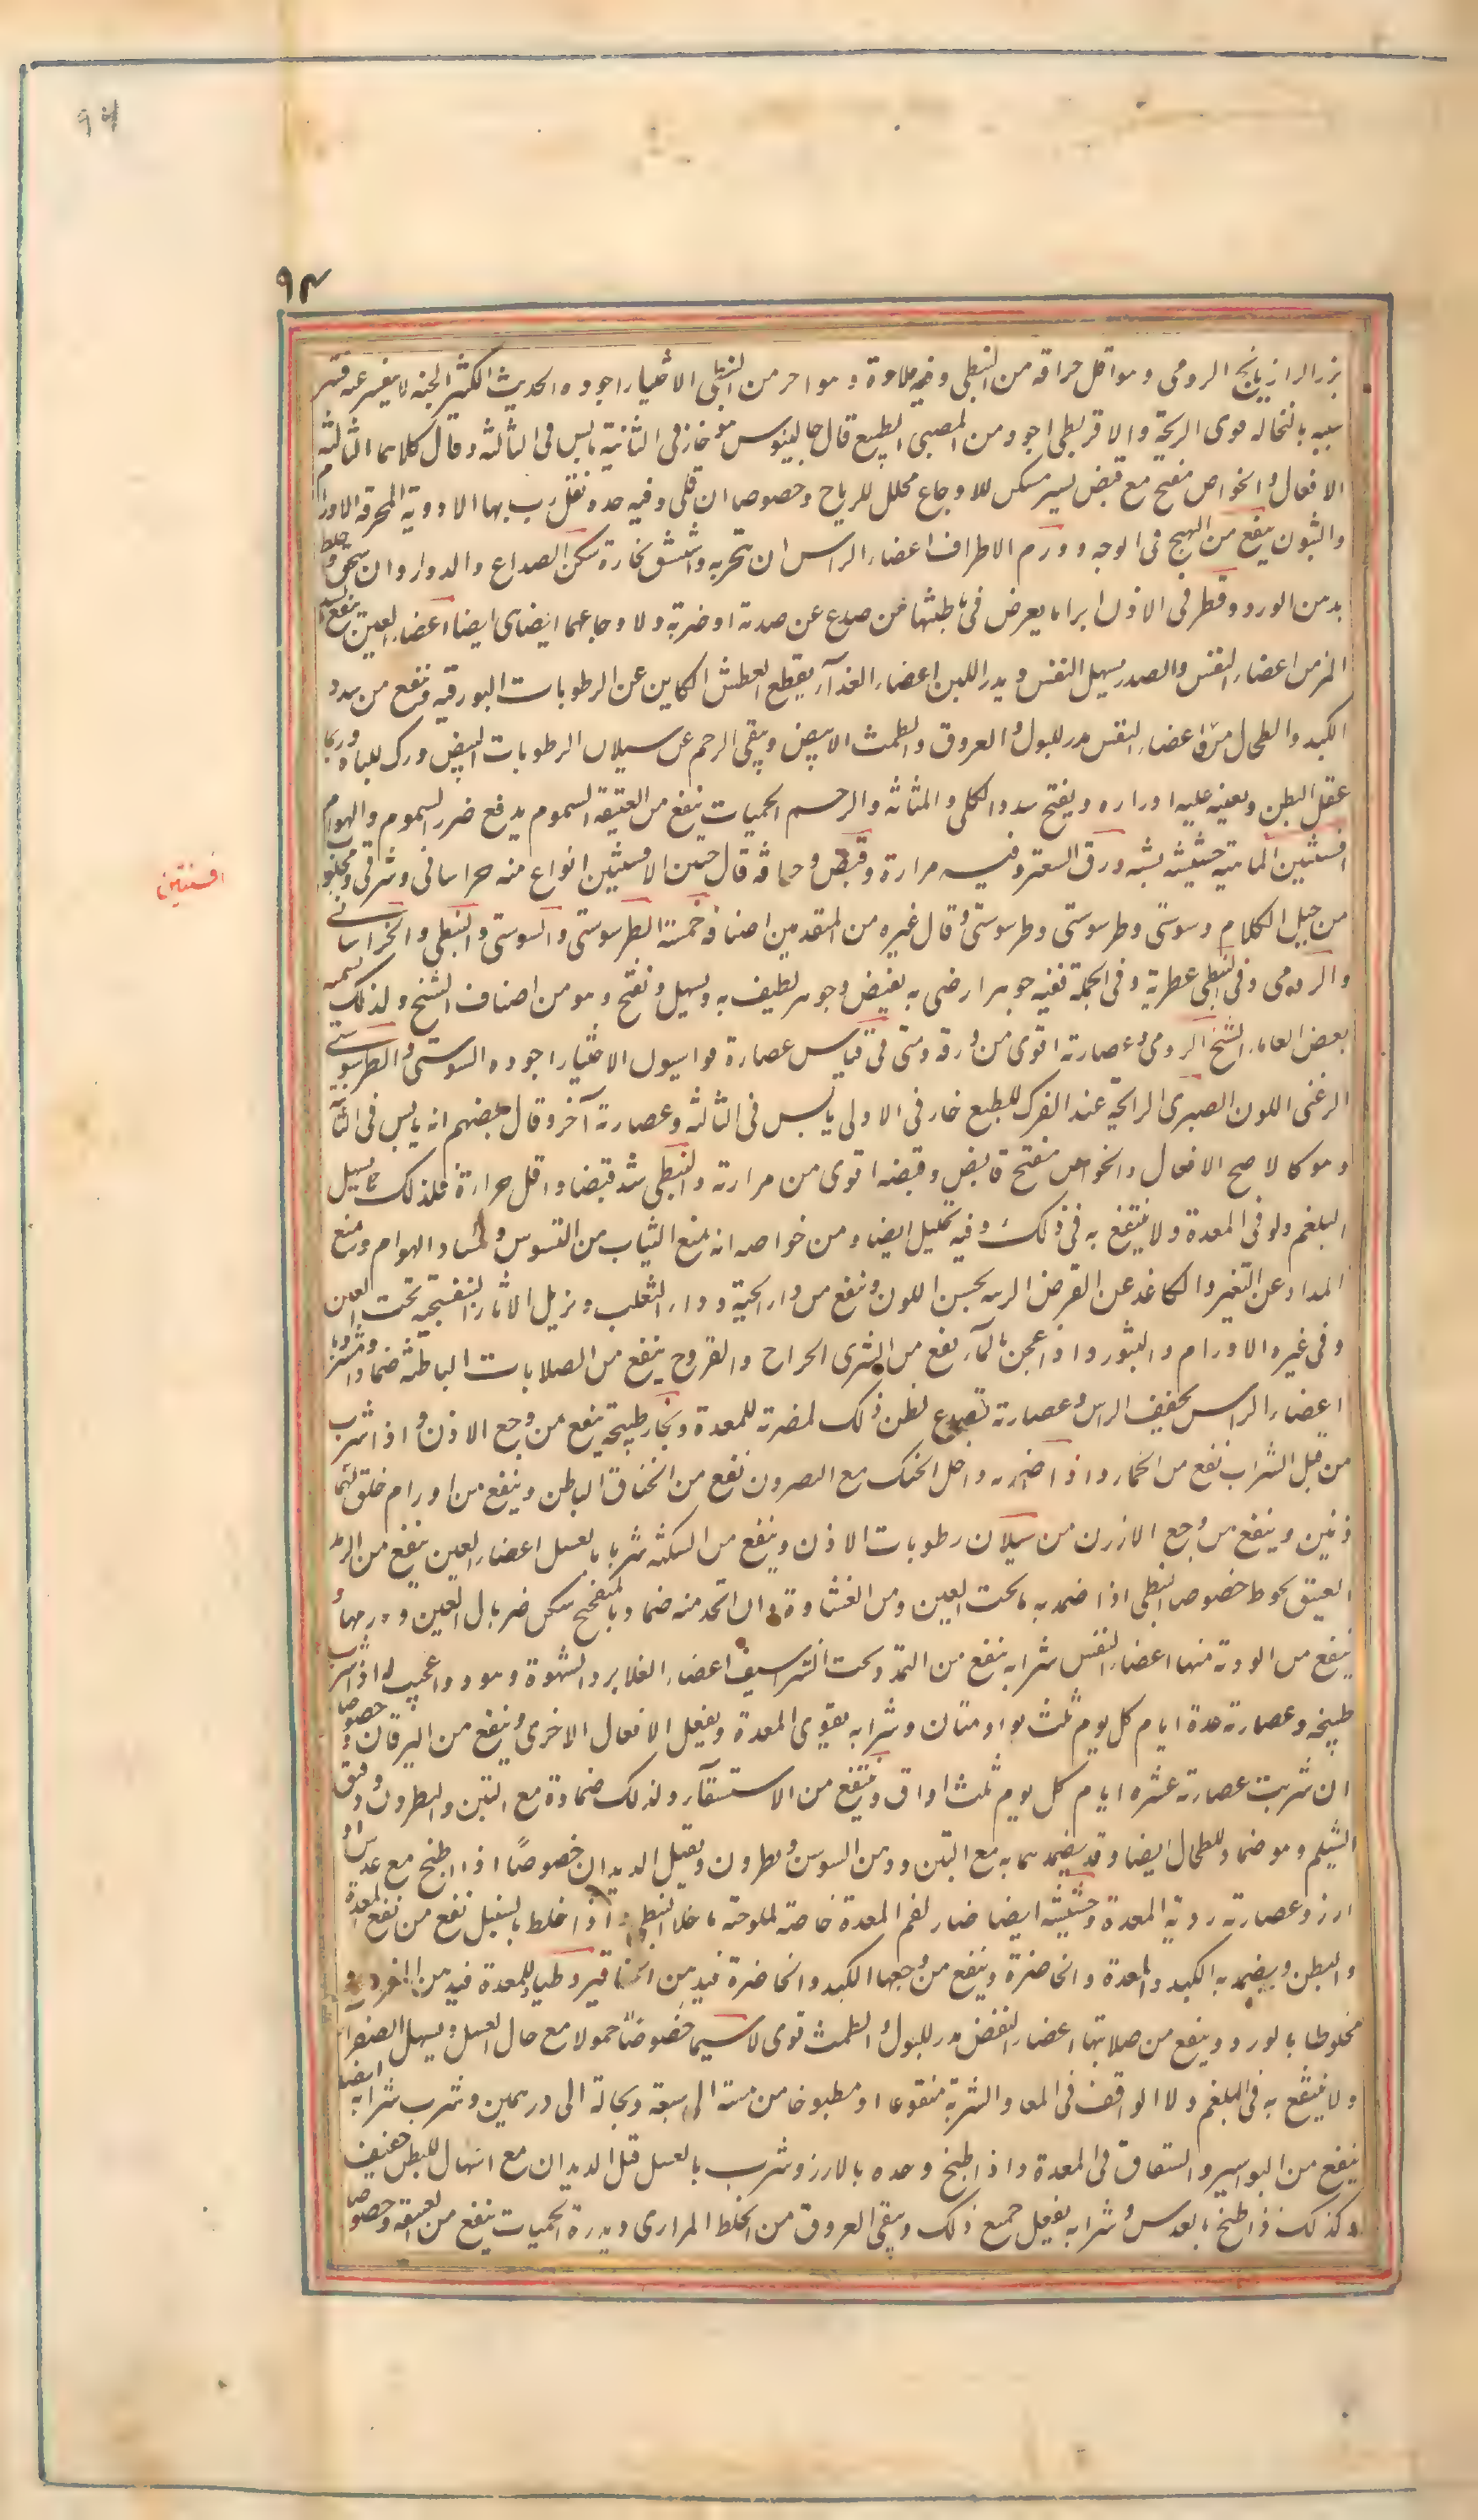 ٩٤
٩٣
بزر الرازیانج الرومی وهو اقل حرافة من النبطی وفیه حلاوة وهو احر من النبطی الاختیار اجوده الحدیث الکثیر الجثه لا یتغیر عنه قشر
شبیه بالنخاله قوی الریحة والاقریطی اجود من المصری الطبع قال جالینوس هو حار فی الثانیة یابس فی الثالثه وقال کلاهما الثالثه
الافعال والخواص مفتح مع قبض یسیر مسکن للاوجاع محلل للریاح وخصوصا ان قلی وفیه حده تقارب بها الادویة المحرقه الاورام
والبثور ینفع من التهیج فی الوجه وورم الاطراف اعضاء الراس ان تبخر به واستنشق بخاره سکن الصداع والدوار وان سحق وخلط
بدهن الورد وقطر فی الاذن ابرا ما یعرض فی باطنها من صدع عن صدمة او ضربة ولا وجاعها ایضا اعضاء العین ینفع السبل
المزمن اعضاء النفس والصدر یسهل النفس ویدر اللبن اعضاء الغذآء یقطع العطش الکاین عن الرطوبات البورقیه وینفع من سدد
الکبد والطحال من اعضاء النفض مدر للبول والعروق والطمث الابیض وینقی الرحم عن سیلان الرطوبات البیض محرک للباه وربما
عقل البطن ویعینه علیه ادراره ویفتح سدد الکلی والمثانه والرحم الحمیات ینفع من العتیقة السموم یدفع ضرر السموم والهوام
افسنتین
افسنتین الماهیة حشیشه یشبه ورق السعتر وفیه مرارة وقبض وحرافة قال حنین الافسنتین انواع منه خراسانی وشرقی ومجلوب
من جبل اللکام وسوسی وطرسوسی وقال غیره من المتقدمین اصنافه خمسة الطرسوسی والسوسی والنبطی والخراسانی
والرومی وفی النبطی عطریة وفی الجملة ففیه جوهر ارضی به یقبض وجوهر لطیف به یسهل ویفتح وهو من اصناف الشیح ولذلک یسمیه
بعض العلماء الشیح الرومی وعصارته اقوی من ورقه وهی فی قیاس عصارة فراسیون الاختیار اجوده السوسی والطرسوسی
الزغبی اللون الصبری الرائحة عند الفرک الطبع حار فی الاولی یابس فی الثالثه وعصارته آحر وقال بعضهم انه یابس فی الثانیة
وهو کالاصح الافعال والخواص مفتح قابض وقبضه اقوی من مرارته والنبطی اشد قبضا واقل حرارة فلذلک لا یسهل
البلغم ولو فی المعدة ولا ینتفع به فی ذلک وفیه تحلیل ایضا ومن خواصه انه یمنع الثیاب من التسوس وفساد الهوام ویمنع
المداد عن التغیر والکاغذ عن القرض الزینه یحسن اللون وینفع من داء الحیة وداء الثعلب ویزیل الاثار البنفسجیة تحت العین
وفی غیره الاورام والبثور واذا عجن بالمآء نفع من الشری الجراح والقروح ینفع من الصلابات الباطنه ضمادا ومشروبا
اعضاء الراس یجفف الراس وعصارته تصدع یظن ذلک لمضرته للمعدة وبخار طبیخه ینفع من وجع الاذن واذا شرب
من قبل الشراب نفع من الخمار واذا ضمد به داخل الحنک مع النطرون نفع من الخناق الباطن وینفع من اورام خلف الا
ذنین وینفع من وجع الاذن من سیلان رطوبات الاذن وینفع من السکته شربا بالعسل اعضاء العین ینفع من الرمد
العتیق خصوصا النبطی اذا ضمد به ما تحت العین ومن الغشاوة وان اتخذ منه ضماد بالمیفختج سکن ضربان العین وورمها و
ینفع من الودقه فیها اعضاء النفس شرابه ینفع من التمدد تحت الشراسیف اعضاء الغذا یرد الشهوة وهو دواء عجیب له اذا شرب
طبیخه وعصارته عدة ایام کل یوم ثلث بواوقیات وشرابه یقوی المعدة ویفعل الافعال الاخری وینفع من الیرقان وخصوصا
ان شربت عصارته عشره ایام کل یوم ثلث اواق وینفع من الاستسقآء وکذلک ضماده مع التین والنطرون ودقیق
الشیلم وهو ضماد للطحال ایضا وقد یضمد به مع التین ودهن السوسن ونطرون ویقتل الدیدان خصوصًا اذا طبخ مع عدس او
ارز وعصارته ردیة للمعدة وحشیشه ایضا ضار لفم المعدة خاصة لملوحته ما خلا النبطی واذا خلط بالسنبل نفع من نفخ المعدة
والبطن ویضمد به الکبد والمعدة والخاصرة وینفع من وجعها الکبد والخاصرة فبدهن الحنا قیروطیا للمعدة فبدهن الورد
مخلوطا بالورد وینفع من صلابتها اعضاء النفض مدر للبول والطمث قوی لاسیما خصوصًا حمولا مع مآء العسل ویسهل الصفرآء
ولا ینتفع به فی البلغم ولا الواقف فی المعا والشربة منقوعا او مطبوخا من خمسة الی سبعة وبحاله الی درهمین وشرب شرابه ایضا
ینفع من البواسیر والشقاق فی المقعدة واذا طبخ وحده بالارز وشرب بالعسل قتل الدیدان مع اسهال للبطن خفیف
وکذلک اذا طبخ بالعدس وشرابه یفعل جمیع ذلک وینقی العروق من الخلط المراری ویدره الحمیات ینفع من العتیقة وخصوصا